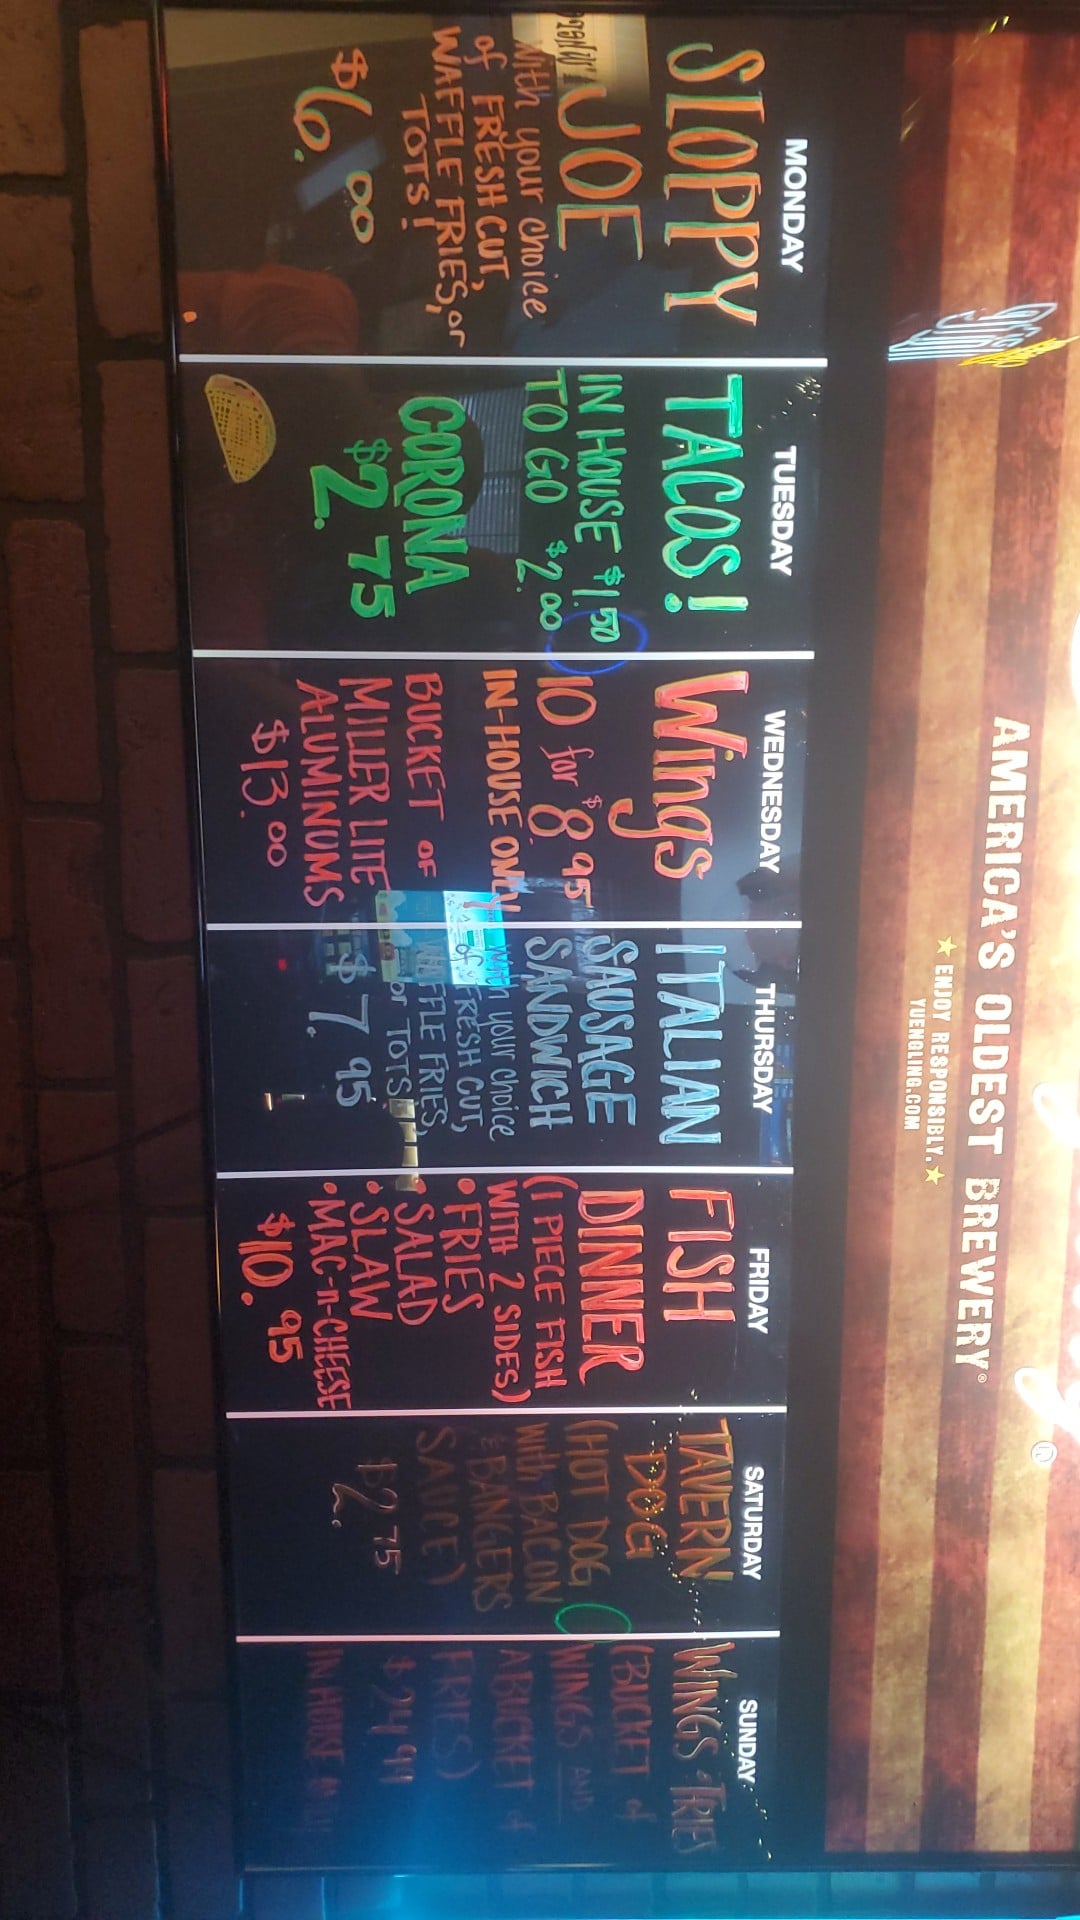 AMERICA'S OLDEST BREWERY®
★ ENJOY RESPONSIBLY. ★
YUENGLING.COM
MONDAY
SLOPPY
JOE
with your choice
of FRESH CUT,
WAFFLE FRIES, or
TOTS!
$6.00
TUESDAY
TACOS!
IN HOUSE $1.50
TO GO $2.00
CORONA
$2.75
WEDNESDAY
Wings
10 for $8.95
IN-HOUSE ONLY
BUCKET OF
MILLER LITE
ALUMINUMS
$13.00
THURSDAY
ITALIAN
SAUSAGE
SANDWICH
with your choice
of FRESH CUT,
WAFFLE FRIES,
or TOTS!
$7.95
FRIDAY
FISH
DINNER
(1 PIECE FISH
WITH 2 SIDES)
•FRIES
•SALAD
•SLAW
•MAC-n-CHEESE
$10.95
SATURDAY
TAVERN
DOG
(HOT DOG
with BACON
& BANGERS
SAUCE)
$2.75
SUNDAY
WINGS & FRIES
(BUCKET of
WINGS AND
A BUCKET of
FRIES)
$24.99
IN HOUSE ONLY